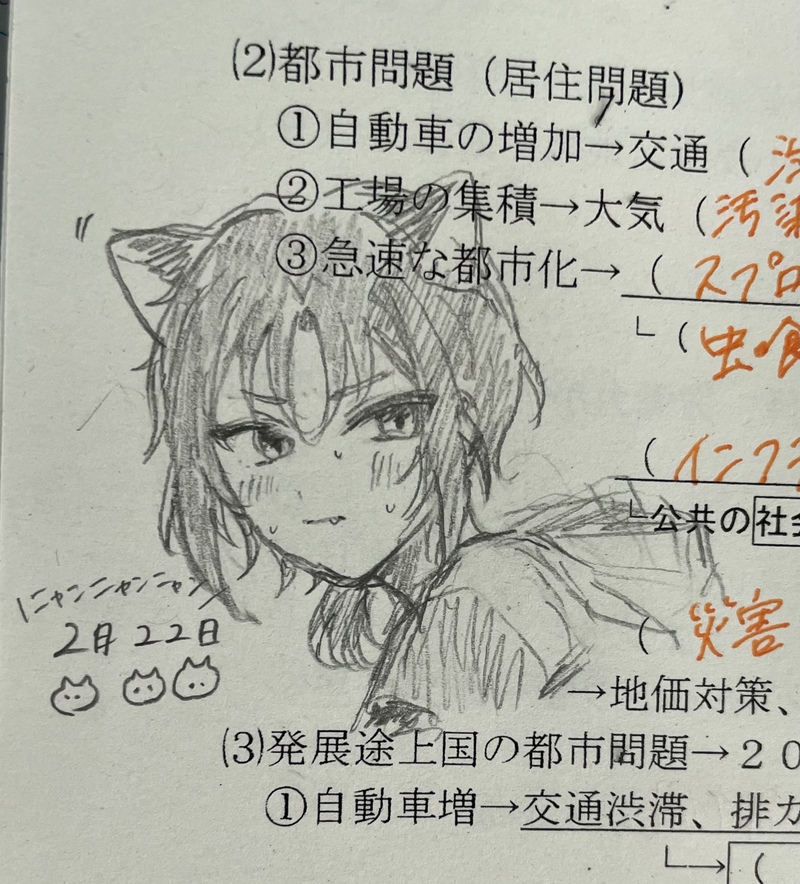 (2)都市問題（居住問題）
①自動車の増加→交通（渋
②工場の集積→大気（汚染
③急速な都市化→（スプロ
└（虫喰
（インフラ
└公共の社会
（災害
→地価対策、
\ニャンニャンニャン/
2月22日
(3)発展途上国の都市問題→２０
①自動車増→交通渋滞、排ガ
└→（